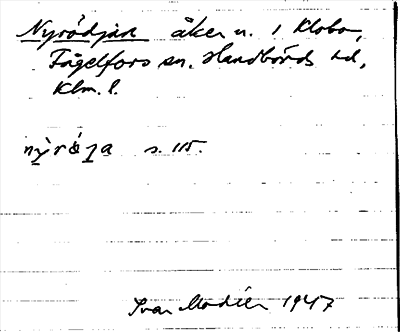 Nyrödjan åker n. i Klobo,
Fågelfors sn. Handbörds hd,
Klm. l.
s. 115.
Ivar Modéer 1947